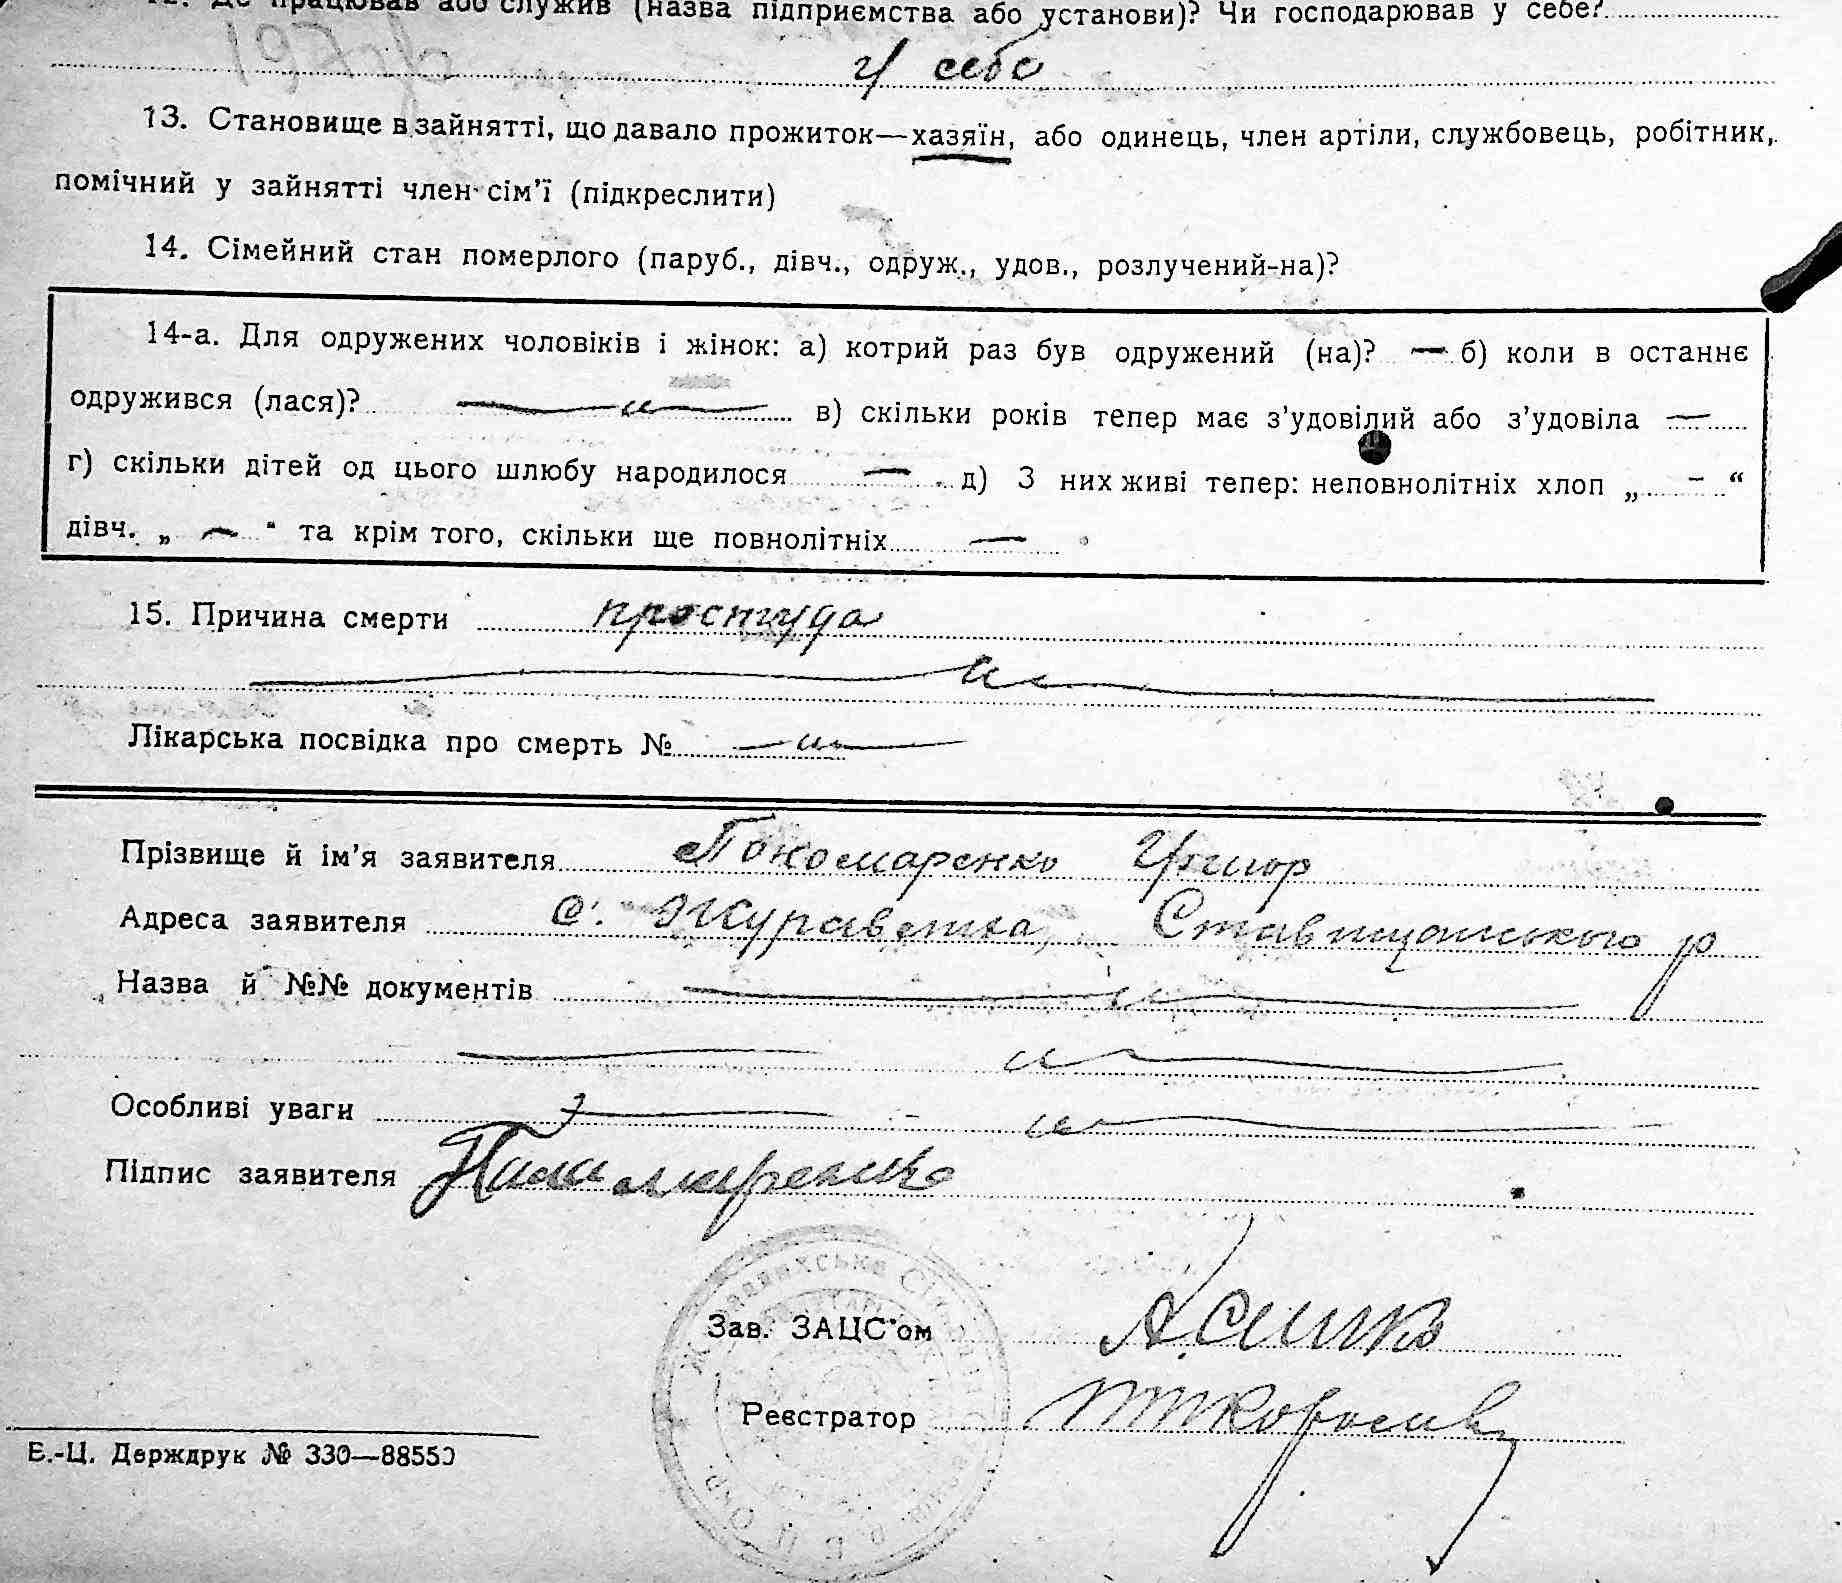 12. Де працював або служив (назва підприємства або установи)? Чи господарював у себе?
У себе
13. Становище в зайнятті, що давало прожиток—хазяїн, або одинець, член артіли, службовець, робітник,
помічний у зайнятті член сім'ї (підкреслити)
14. Сімейний стан померлого (паруб., дівч., одруж., удов., розлучений-на)?
14-а. Для одружених чоловіків і жінок: а) котрий раз був одружений (на)? — б) коли в останнє
одружився (лася)? — „ — в) скільки років тепер має з'удовілий або з'удовіла —
г) скільки дітей од цього шлюбу народилося — д) З них живі тепер: неповнолітніх хлоп „ - “
дівч. „ — “ та крім того, скільки ще повнолітніх —
15. Причина смерти простуда
Лікарська посвідка про смерть № — „ —
Прізвище й ім'я заявителя Пономаренко Григор
Адреса заявителя с. Журавлиха, Ставищанського р
Назва й №№ документів — „ —
Особливі уваги — „ —
Підпис заявителя
Зав. ЗАЦС'ом
Реєстратор
Б.-Ц. Держдрук № 330—88550